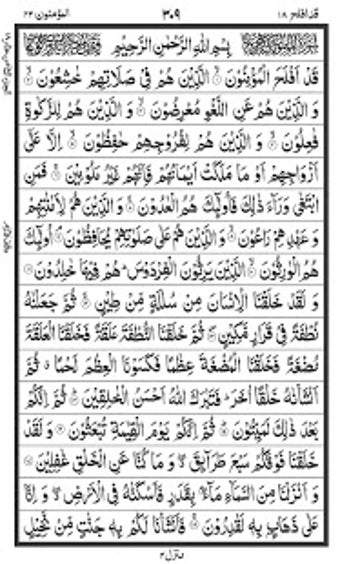 قد افلح ١٨ ٣٠٩ المؤمنون ٢٣
بِسْمِ اللهِ الرَّحْمٰنِ الرَّحِيْمِ
قَدْ اَفْلَحَ الْمُؤْمِنُوْنَ ۙ الَّذِيْنَ هُمْ فِيْ صَلَاتِهِمْ خٰشِعُوْنَ ۙ
وَ الَّذِيْنَ هُمْ عَنِ اللَّغْوِ مُعْرِضُوْنَ ۙ وَ الَّذِيْنَ هُمْ لِلزَّكٰوةِ
فٰعِلُوْنَ ۙ وَ الَّذِيْنَ هُمْ لِفُرُوْجِهِمْ حٰفِظُوْنَ ۙ اِلَّا عَلٰۤى
اَزْوَاجِهِمْ اَوْ مَا مَلَكَتْ اَيْمَانُهُمْ فَاِنَّهُمْ غَيْرُ مَلُوْمِيْنَ ۚ فَمَنِ
ابْتَغٰى وَرَآءَ ذٰلِكَ فَاُولٰٓئِكَ هُمُ الْعٰدُوْنَ ۚ وَ الَّذِيْنَ هُمْ لِاَمٰنٰتِهِمْ
وَ عَهْدِهِمْ رٰعُوْنَ ۙ وَ الَّذِيْنَ هُمْ عَلٰى صَلَوٰتِهِمْ يُحَافِظُوْنَ ۘ اُولٰٓئِكَ
هُمُ الْوٰرِثُوْنَ ۙ الَّذِيْنَ يَرِثُوْنَ الْفِرْدَوْسَ ؕ هُمْ فِيْهَا خٰلِدُوْنَ
وَ لَقَدْ خَلَقْنَا الْاِنْسَانَ مِنْ سُلٰلَةٍ مِّنْ طِيْنٍ ۚ ثُمَّ جَعَلْنٰهُ
نُطْفَةً فِيْ قَرَارٍ مَّكِيْنٍ ۪ ثُمَّ خَلَقْنَا النُّطْفَةَ عَلَقَةً فَخَلَقْنَا الْعَلَقَةَ
مُضْغَةً فَخَلَقْنَا الْمُضْغَةَ عِظٰمًا فَكَسَوْنَا الْعِظٰمَ لَحْمًا ۗ ثُمَّ
اَنْشَاْنٰهُ خَلْقًا اٰخَرَ ؕ فَتَبٰرَكَ اللهُ اَحْسَنُ الْخٰلِقِيْنَ ؕ ثُمَّ اِنَّكُمْ
بَعْدَ ذٰلِكَ لَمَيِّتُوْنَ ؕ ثُمَّ اِنَّكُمْ يَوْمَ الْقِيٰمَةِ تُبْعَثُوْنَ وَ لَقَدْ
خَلَقْنَا فَوْقَكُمْ سَبْعَ طَرَآئِقَ ۖ وَ مَا كُنَّا عَنِ الْخَلْقِ غٰفِلِيْنَ
وَ اَنْزَلْنَا مِنَ السَّمَآءِ مَآءًۢ بِقَدَرٍ فَاَسْكَنّٰهُ فِي الْاَرْضِ ۖ وَ اِنَّا
عَلٰى ذَهَابٍۭ بِهٖ لَقٰدِرُوْنَ ۚ فَاَنْشَاْنَا لَكُمْ بِهٖ جَنّٰتٍ مِّنْ نَّخِيْلٍ
منزل ٤